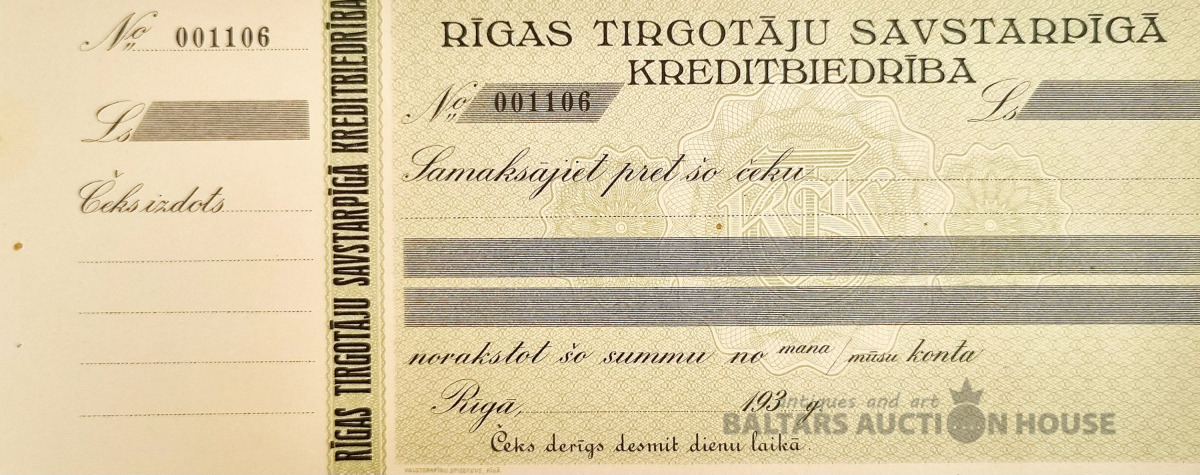 No 001106
Ls
Čeks izdots
RĪGAS TIRGOTĀJU SAVSTARPĪGĀ KREDITBIEDRĪBA
RĪGAS TIRGOTĀJU SAVSTARPĪGĀ
KREDITBIEDRĪBA
No 001106 Ls
Samaksājiet pret šo čeku
norakstot šo summu no mana/mūsu konta
Rīgā, 193 g.
Čeks derīgs desmit dienu laikā.
antiques and art
BALTARS AUCTION HOUSE